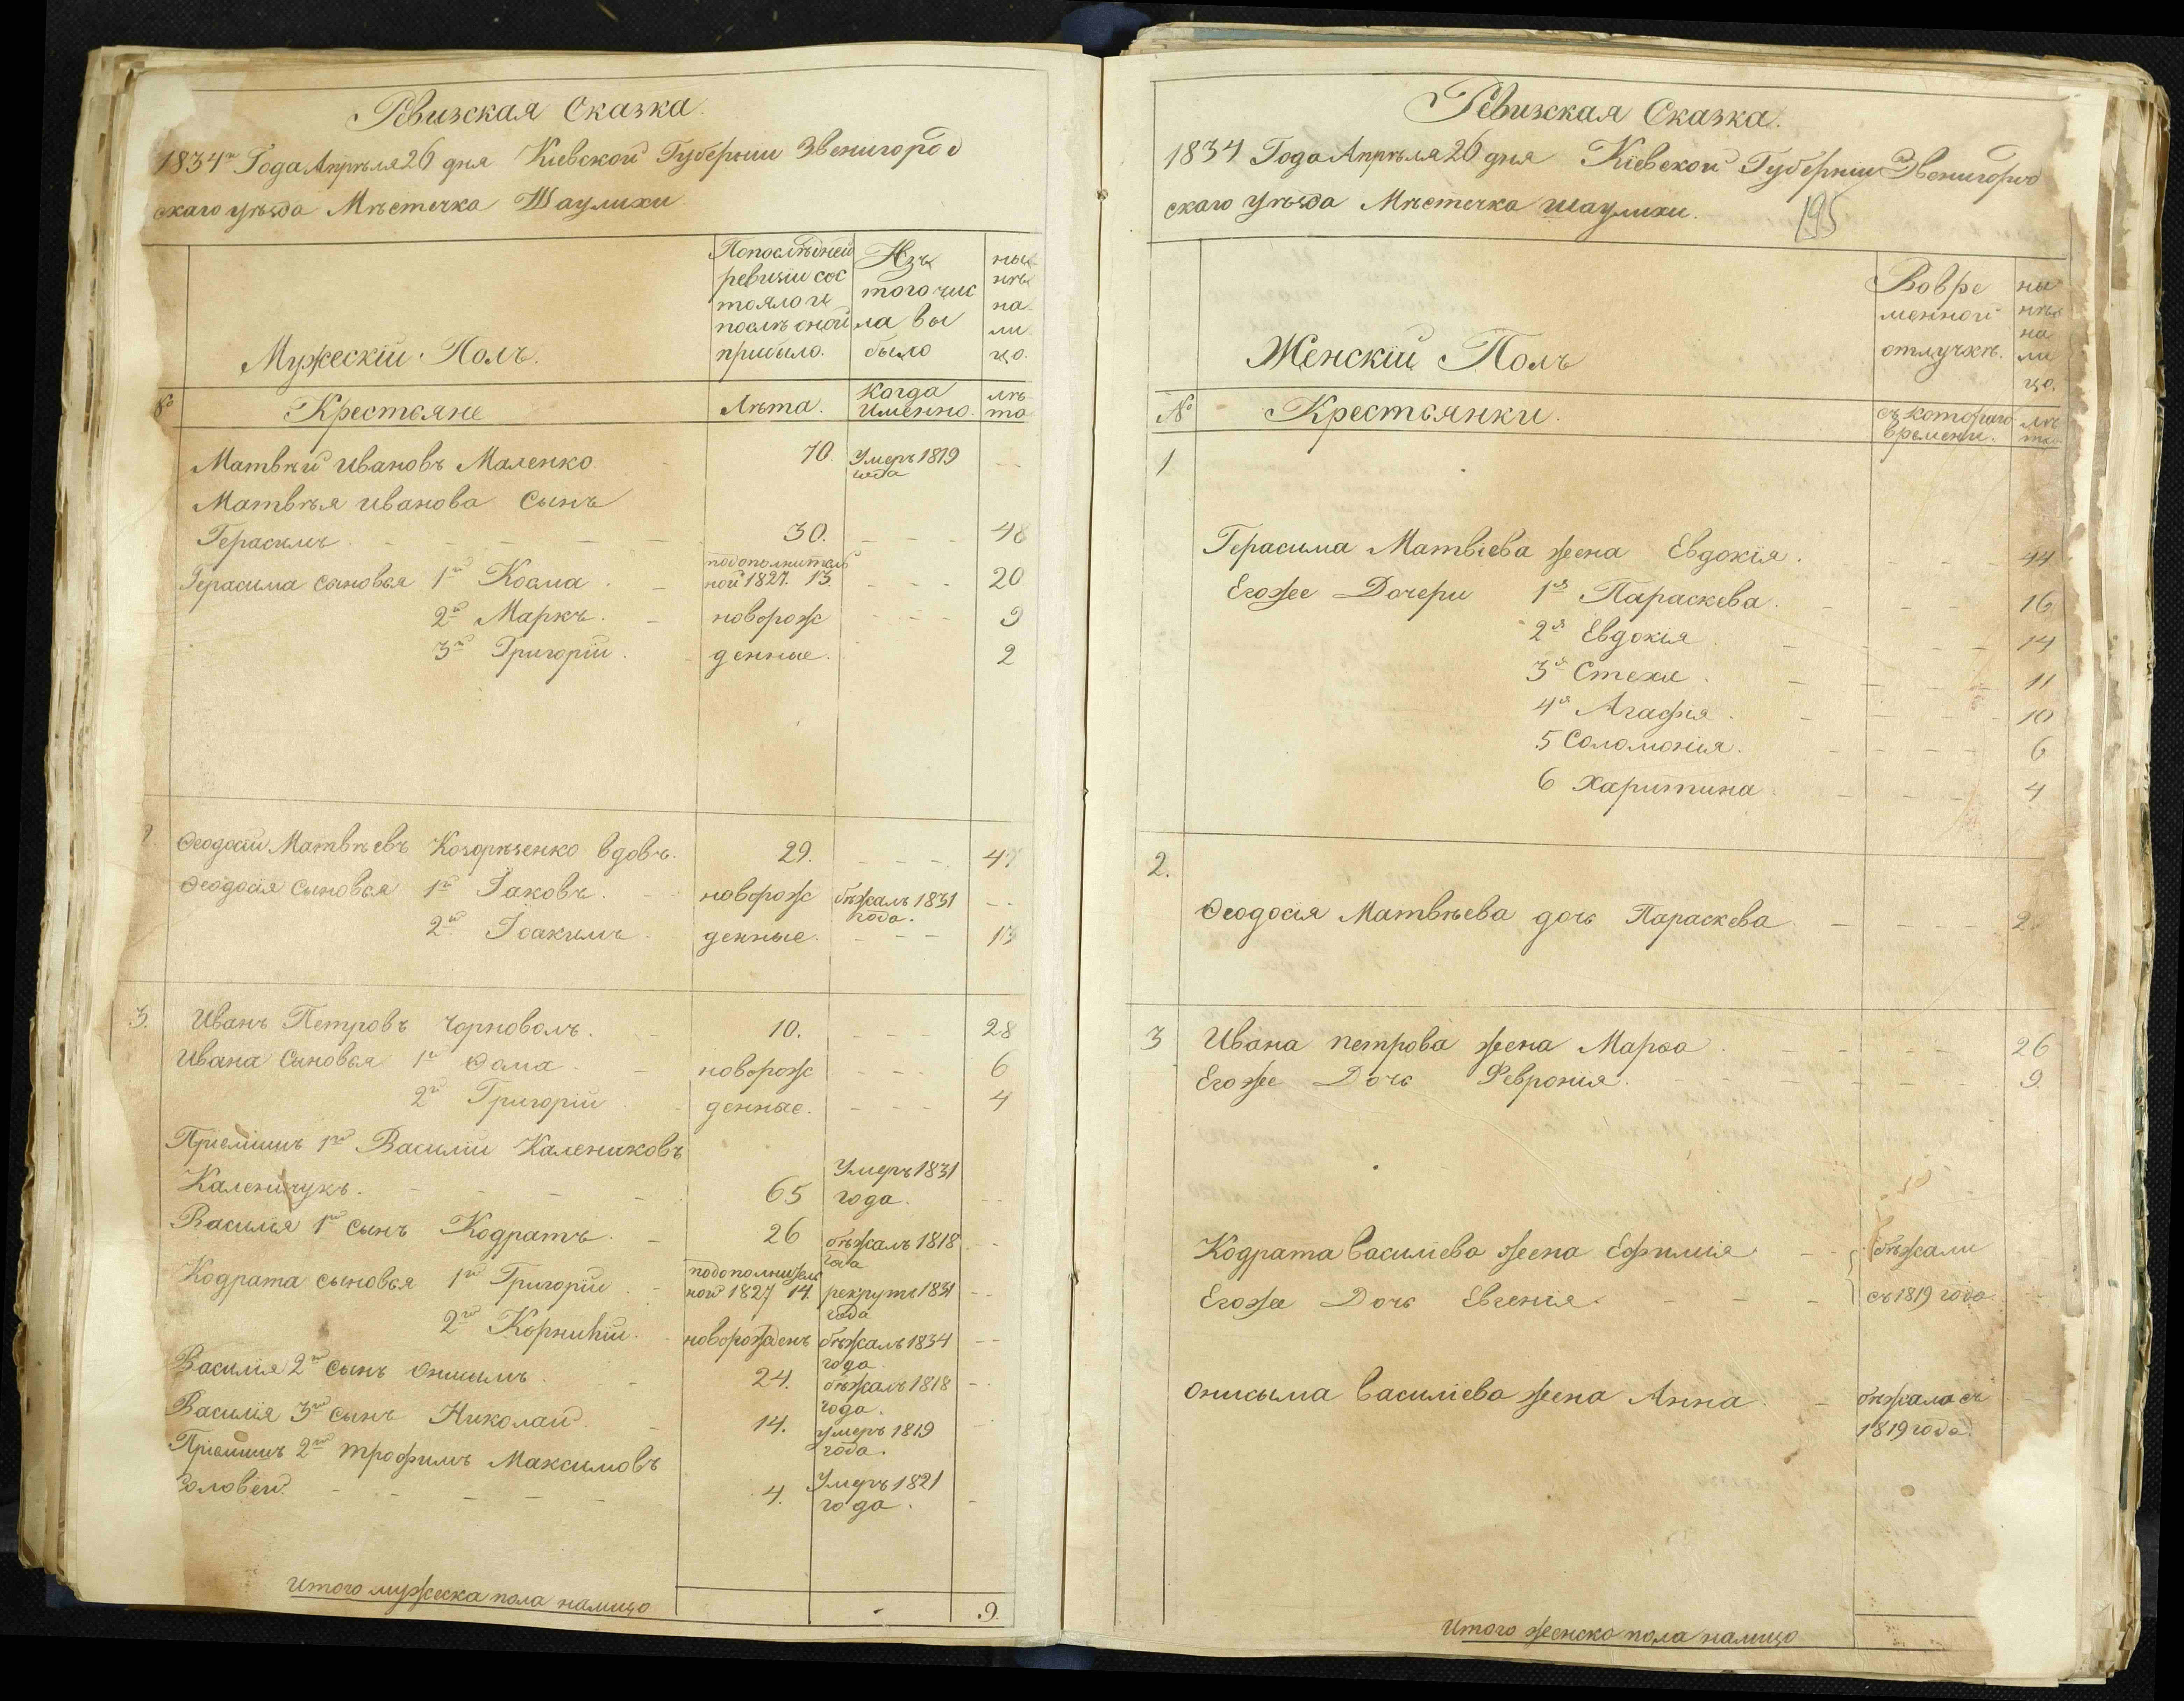 Ревизская Сказка.
1834го Года Апрѣля 26 дня Кіевской Губерніи Звенигород
скаго уѣзда Мѣстечка Шаулихи
Мужескій Полъ.
Попослѣдней
ревизіи сос
тояло и
послѣ оной
прибыло.
Изъ
того чис
ла вы
было
ны
нѣ
на
ли
цо.
№
Крестьяне
Лѣта.
Когда
Именно.
лѣ
та
Матвѣй Ивановъ Маленко 70. Умеръ 1819
года
Матвѣя Иванова Сынъ
Герасимъ. 30. 48
Герасима сыновья 1й Косма. подополнитель
ной 1827. 13. 20
2й Маркъ. новорож 9
3й Григорій. денные. 2
2. Ѳеодосій Матвѣевъ вдовъ. 29. 47
Ѳеодосія Сыновья 1й Іаковъ. новорож бѣжалъ 1831
года.
2й Іоакимъ. денные. 13
3. Иванъ Петровъ Чорноволъ. 10. 28
Ивана Сыновья 1й Ѳома. новорож 6
2й Григорій денные. 4
Пріемышъ 1й Василій Калениковъ
Каленичукъ. 65 Умеръ 1831
года.
Василія 1й сынъ Кодратъ. 26 бѣжалъ 1818
года
Кодрата сыновья 1й Григорій. подополнитель
ной 1827 14. рекрутъ 1831
года
2й Корнилій. новорожденъ бѣжалъ 1834
года.
Василія 2й сынъ Онисимъ. 24. бѣжалъ 1818
года.
Василія 3й сынъ Николай. 14. умеръ 1819
года.
Пріемышъ 2й Трофимъ Максимовъ
Соловей. 4. Умеръ 1821
года.
Итого мужеска пола налицо 9.
Ревизская Сказка.
1834 Года Апрѣля 26 дня Кіевской Губерніи Звенигород
скаго уѣзда Мѣстечка Шаулихи.
195
Женскій Полъ
Вовре
менной
отлучкѣ.
ны
нѣ
на
ли
цо.
№
Крестьянки.
съ котораго
времени.
лѣ
та.
1
Герасима Матвіева жена Евдокія. 44
Егоже Дочери 1я Параскева. 16
2я Евдокія 14
3я Стеха 11
4я Агафія. 10
5 Соломонія. 6
6 Харитина 4
2.
Ѳеодосія Матвѣева дочь Параскева 2
3 Ивана Петрова жена Марѳа 26
Егоже Дочь Февронія. 9
Кодрата Василіева жена Ефимія бѣжали
Егоже Дочь Евгенія. съ 1819 года.
Онисыма Василіева жена Анна. бѣжала съ
1819 года.
Итого женска пола налицо